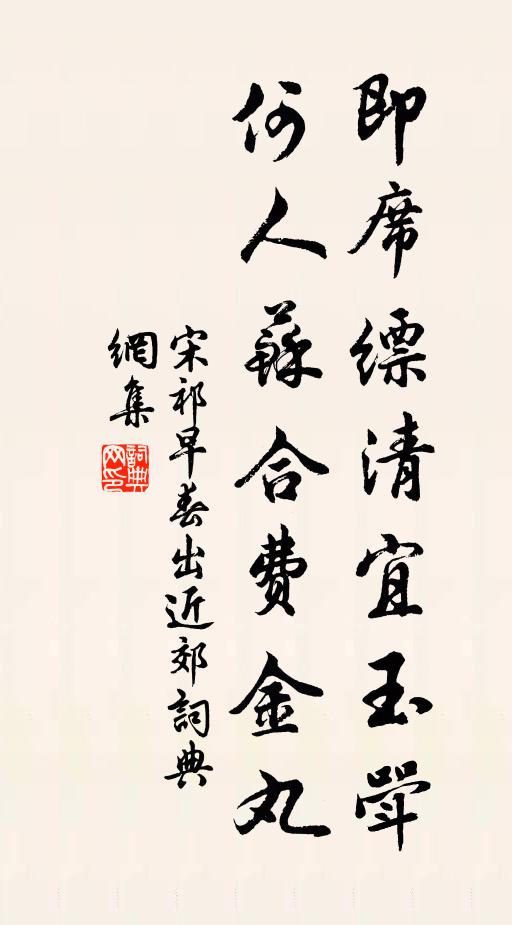 即席縹清宜玉斝
何人蘇合費金丸
宋祁早春出近郊詞典
網集
詞典網印